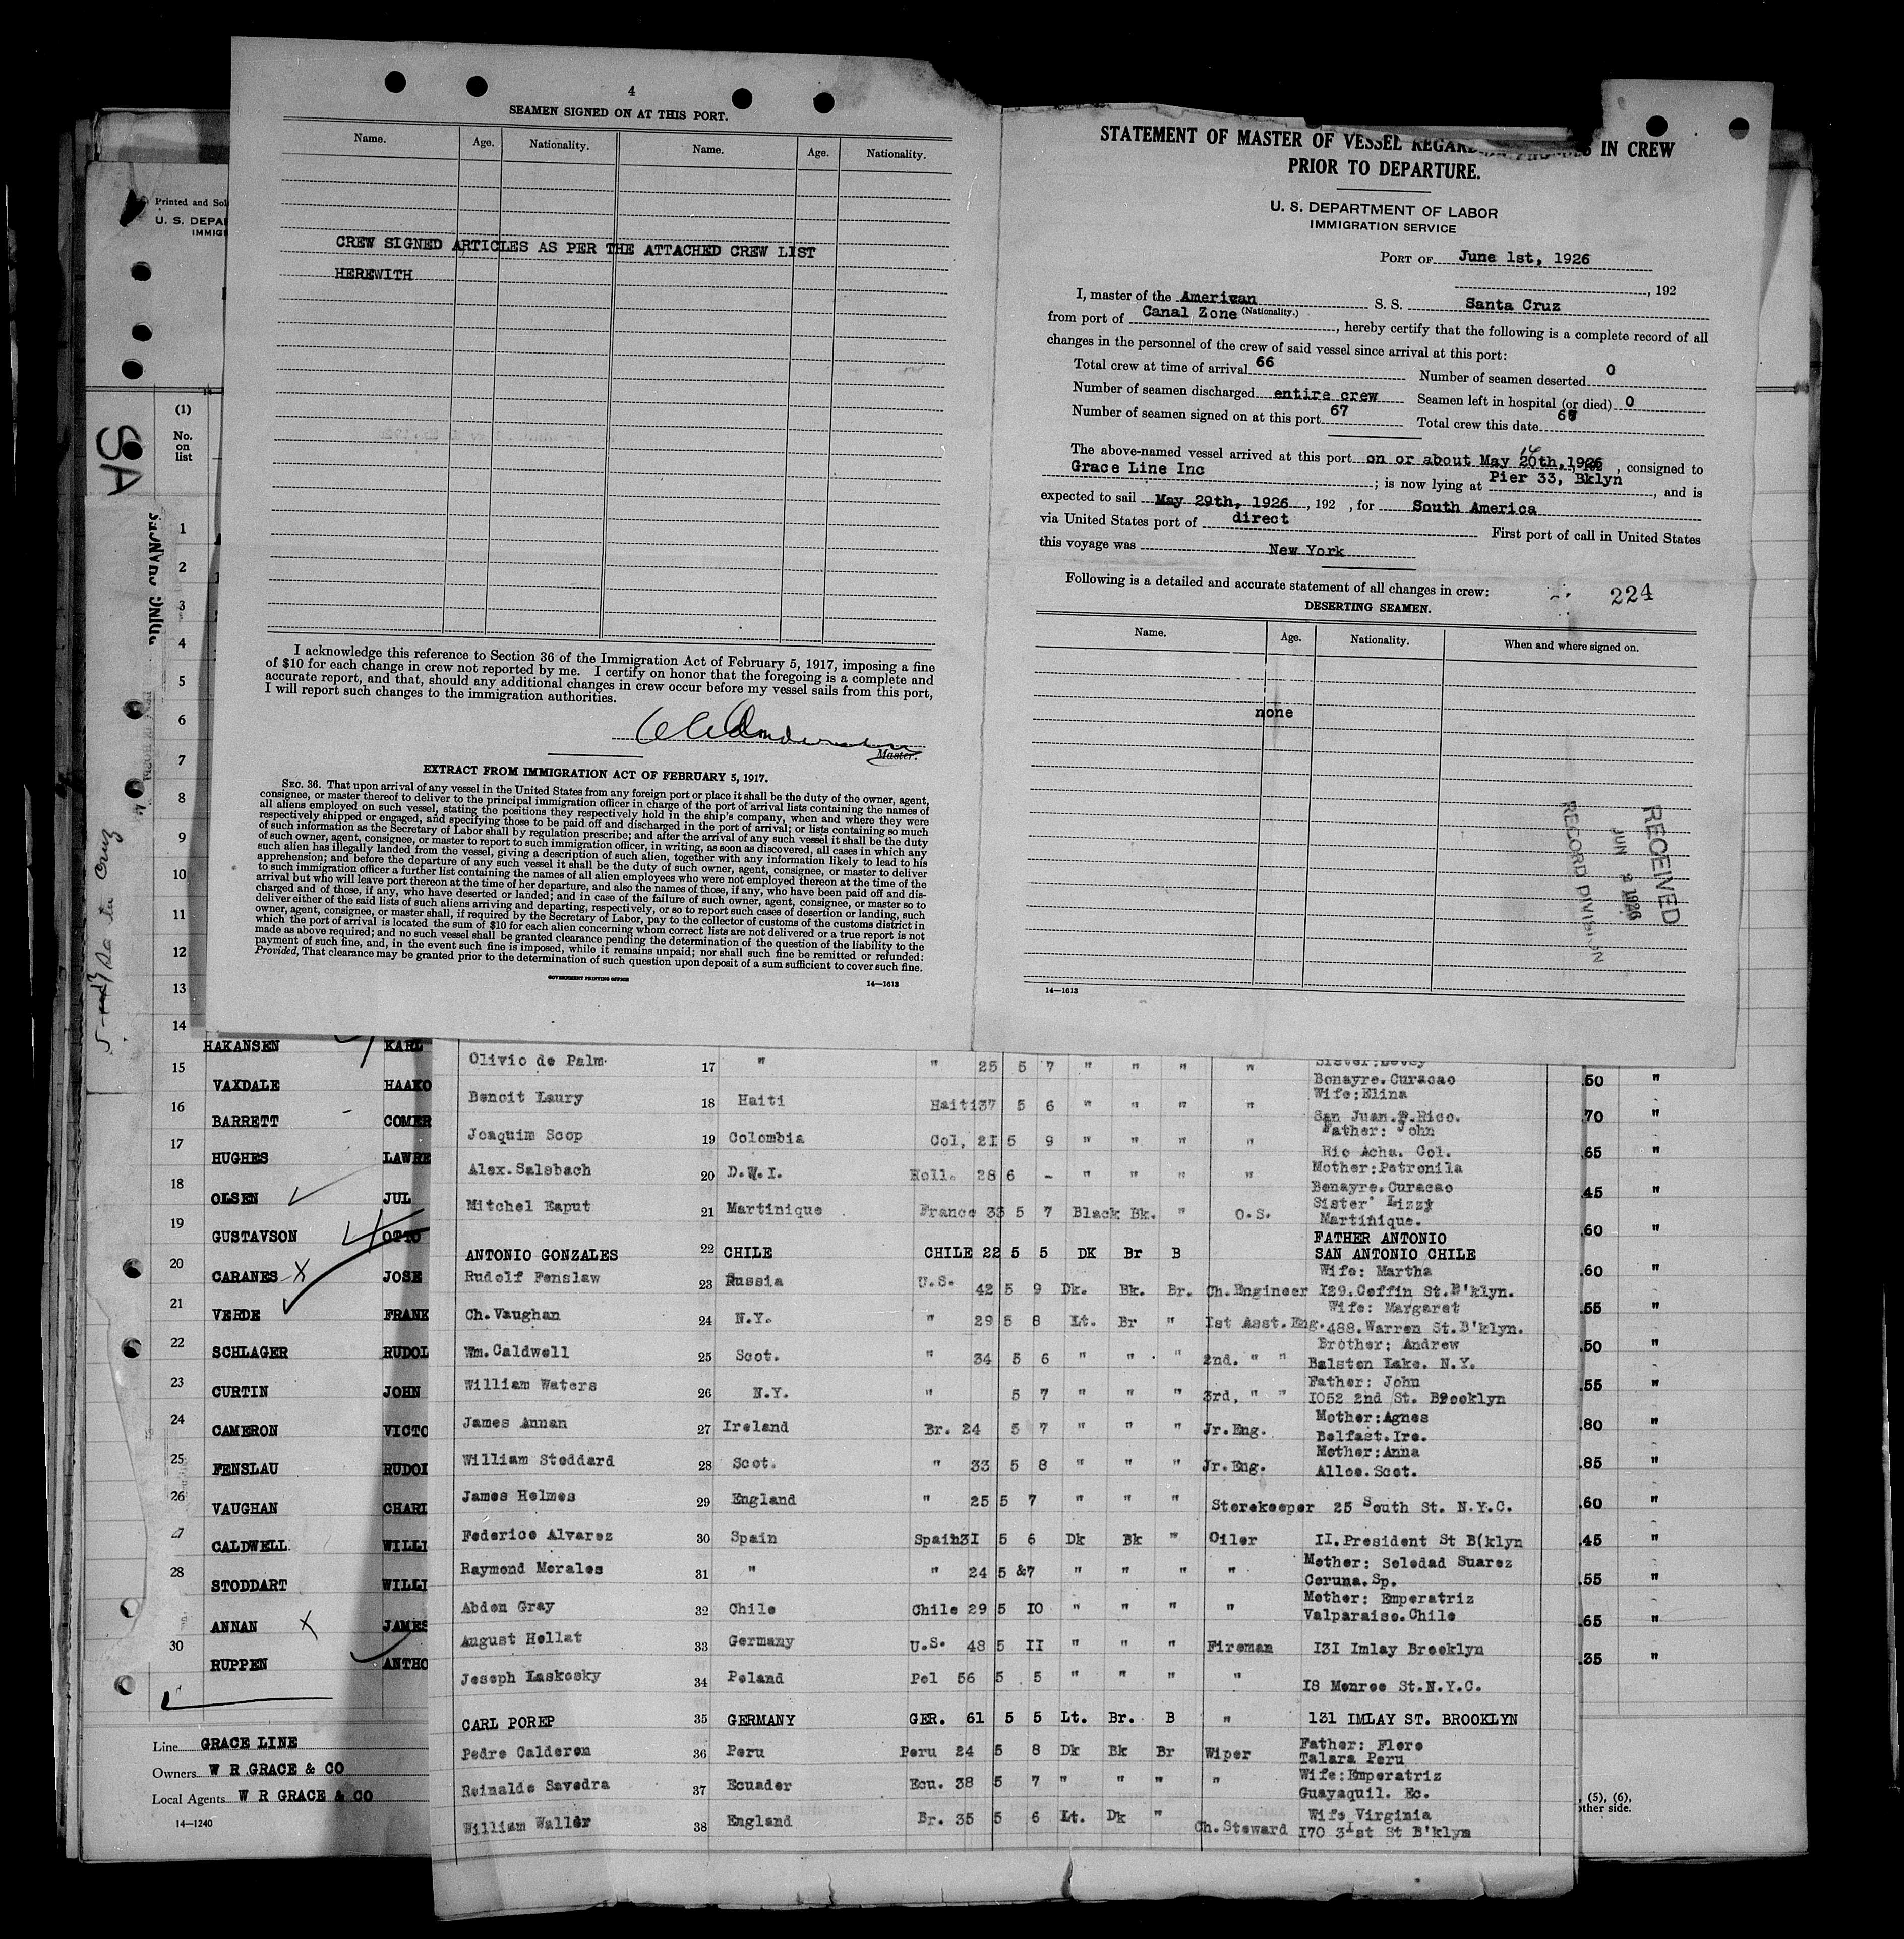 4
SEAMEN SIGNED ON AT THIS PORT.
Name. Age. Nationality. Name. Age. Nationality.
CREW SIGNED ARTICLES AS PER THE ATTACHED CREW LIST
HEREWITH
I acknowledge this reference to Section 36 of the Immigration Act of February 5, 1917, imposing a fine
of $10 for each change in crew not reported by me. I certify on honor that the foregoing is a complete and
accurate report, and that, should any additional changes in crew occur before my vessel sails from this port,
I will report such changes to the immigration authorities.
Master.
EXTRACT FROM IMMIGRATION ACT OF FEBRUARY 5, 1917.
SEC. 36. That upon arrival of any vessel in the United States from any foreign port or place it shall be the duty of the owner, agent,
consignee, or master thereof to deliver to the principal immigration officer in charge of the port of arrival lists containing the names of
all aliens employed on such vessel, stating the positions they respectively hold in the ship's company, when and where they were
respectively shipped or engaged, and specifying those to be paid off and discharged in the port of arrival; or lists containing so much
of such information as the Secretary of Labor shall by regulation prescribe; and after the arrival of any such vessel it shall be the duty
of such owner, agent, consignee, or master to report to such immigration officer, in writing, as soon as discovered, all cases in which any
such alien has illegally landed from the vessel, giving a description of such alien, together with any information likely to lead to his
apprehension; and before the departure of any such vessel it shall be the duty of such owner, agent, consignee, or master to deliver
to such immigration officer a further list containing the names of all alien employees who were not employed thereon at the time of the
arrival but who will leave port thereon at the time of her departure, and also the names of those, if any, who have been paid off and dis-
charged and of those, if any, who have deserted or landed; and in case of the failure of such owner, agent, consignee, or master so to
deliver either of the said lists of such aliens arriving and departing, respectively, or so to report such cases of desertion or landing, such
owner, agent, consignee, or master shall, if required by the Secretary of Labor, pay to the collector of customs of the customs district in
which the port of arrival is located the sum of $10 for each alien concerning whom correct lists are not delivered or a true report is not
made as above required; and no such vessel shall be granted clearance pending the determination of the question of the liability to the
payment of such fine, and, in the event such fine is imposed, while it remains unpaid; nor shall such fine be remitted or refunded:
Provided, That clearance may be granted prior to the determination of such question upon deposit of a sum sufficient to cover such fine.
GOVERNMENT PRINTING OFFICE
14—1613
STATEMENT OF MASTER OF VESSEL IN CREW
PRIOR TO DEPARTURE.
U. S. DEPARTMENT OF LABOR
IMMIGRATION SERVICE
PORT OF June 1st, 1926
, 192
I, master of the American S. S. Santa Cruz
(Nationality.)
from port of Canal Zone, hereby certify that the following is a complete record of all
changes in the personnel of the crew of said vessel since arrival at this port:
Total crew at time of arrival 66 Number of seamen deserted 0
Number of seamen discharged entire crew Seamen left in hospital (or died) 0
Number of seamen signed on at this port 67 Total crew this date 67
14
The above-named vessel arrived at this port on or about May 20th, 1926, consigned to
Grace Line Inc ; is now lying at Pier 33, Bklyn, and is
expected to sail May 29th, 1926, 192 , for South America
via United States port of direct First port of call in United States
this voyage was New York
Following is a detailed and accurate statement of all changes in crew:
224
DESERTING SEAMEN.
Name. Age. Nationality. When and where signed on.
none
RECEIVED
JUN 2 1926
RECORD DIVISION
14—1613
Printed and Sol
U. S. DEPA
IMMIG
(1)
No.
on
list
SA
1
2
3
4
5
6
7
8
9
10
11
12
13
14
15
16
17
18
19
20
21
22
23
24
25
26
27
28
30
HAKANSEN KARL
VAXDALE HAAKO
BARRETT COMER
HUGHES LAWRE
OLSEN JUL
GUSTAVSON OTTO
CARANES JOSE
VERDE FRANK
SCHLAGER RUDOL
CURTIN JOHN
CAMERON VICTO
FENSLAU RUDOL
VAUGHAN CHARL
CALDWELL WILLI
STODDART WILLI
ANNAN JAMES
RUPPEN ANTHO
Line GRACE LINE
Owners W R GRACE & CO
Local Agents W R GRACE & CO
14—1240
Olivio de Palm 17 " " 25 5 7 " " " "
Bonayre.Curacao
Benoit Laury 18 Haiti Haiti 37 5 6 " " " " Wife:Elina
San Juan.P.Rico.
Joaquim Scop 19 Colombia Col, 21 5 9 " " " " Father: John
Rio Acha. Col.
Alex.Salsbach 20 D.W.I. Holl. 28 6 - " " " " Mother:Petronila
Bonayre.Curacao
Mitchel Eaput 21 Martinique France 33 5 7 Black Bk. " O.S. Sister Lizzy
Martinique.
ANTONIO GONZALES 22 CHILE CHILE 22 5 5 DK Br B FATHER ANTONIO
SAN ANTONIO CHILE
Rudolf Fenslaw 23 Russia U.S. 42 5 9 Dk. Bk. Br. Ch.Engineer Wife: Martha
129.Coffin St.B'klyn.
Ch.Vaughan 24 N.Y. " 29 5 8 Lt. Br " 1st Asst.Eng. Wife: Margaret
488.Warren St.B'klyn.
Wm.Caldwell 25 Scot. " 34 5 6 " " " 2nd. " " Brother: Andrew
Balsten Lake. N.Y.
William Waters 26 N.Y. " 5 7 " " " 3rd, " " Father: John
1052 2nd St. Brooklyn
James Annan 27 Ireland Br. 24 5 7 " " " Jr.Eng. Mother:Agnes
Belfast.Ire.
William Stoddard 28 Scot. " 33 5 8 " " " Jr.Eng. Mother:Anna
Alloe.Scot.
James Holmes 29 England " 25 5 7 " " " Storekeeper 25 South St. N.Y.C.
Federico Alvarez 30 Spain Spain 31 5 6 Dk Bk " Oiler 11.President St B(klyn
Raymond Morales 31 " " 24 5 &7 " " " " Mother: Soledad Suarez
Coruna.Sp.
Abdon Gray 32 Chile Chile 29 5 10 " " " " Mother: Emperatriz
Valparaiso.Chile
August Hollat 33 Germany U.S. 48 5 11 " " " Fireman 131 Imlay Brooklyn
Joseph Laskosky 34 Poland Pol 56 5 5 " " " " 18 Monroe St.N.Y.C.
CARL POREP 35 GERMANY GER. 61 5 5 Lt. Br. B " 131 IMLAY ST. BROOKLYN
Pedro Calderon 36 Peru Peru 24 5 8 Dk Bk Br Wiper Father: Flore
Talara Peru
Reinaldo Savedra 37 Ecuador Ecu. 38 5 7 " " " " Wife:Emperatriz
Guayaquil. Ec.
William Waller 38 England Br. 35 5 6 Lt. Dk " Ch.Steward Wife Virginia
170 31st St B'klyn
.50 "
.70 "
.65 "
.45 "
.60 "
.60 "
.55 "
.50 "
.55 "
.80 "
.85 "
.60 "
.45 "
.55 "
.65 "
.35 "
, (5), (6),
other side.